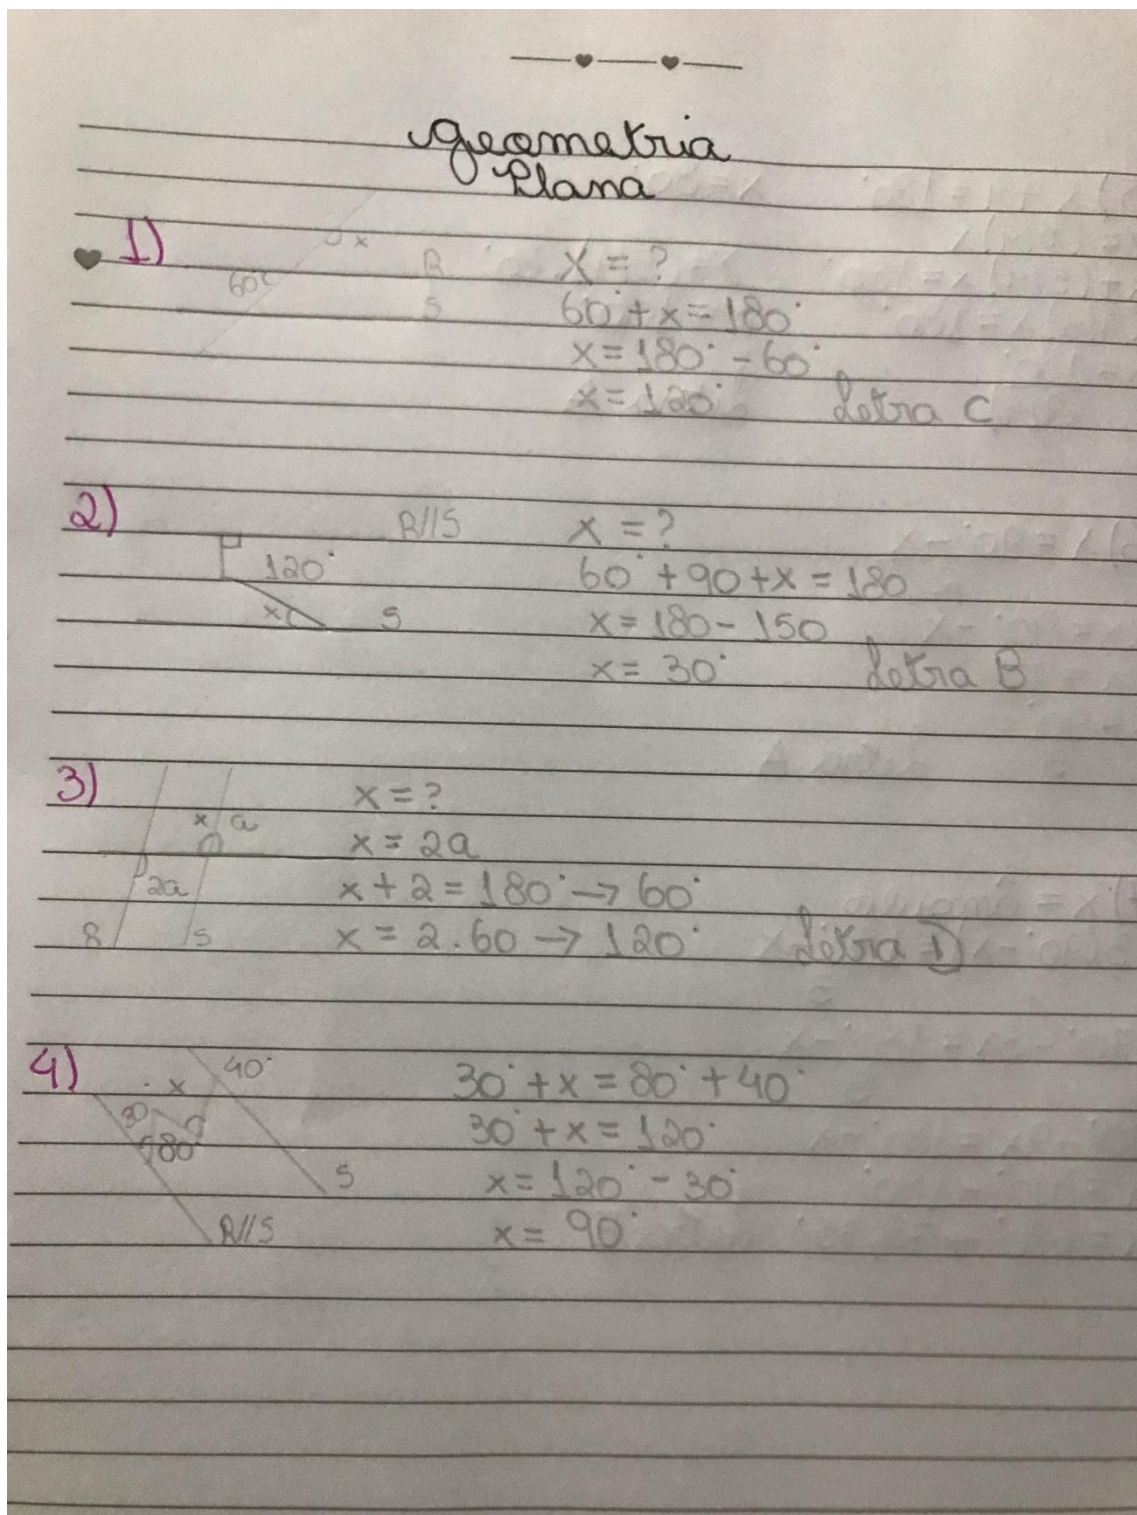 Geometria
Plana
1)
x
60°
R
S
X = ?
60° + x = 180°
x = 180° - 60°
x = 120° Letra C
2)
R//S
120°
x
S
x = ?
60° + 90 + x = 180
x = 180 - 150
x = 30° Letra B
3)
x a
2a
R S
x = ?
x = 2a
x + 2 = 180° → 60°
x = 2.60 → 120° Letra D
4)
40°
x
30
80°
S
R//S
30° + x = 80° + 40°
30° + x = 120°
x = 120° - 30°
x = 90°